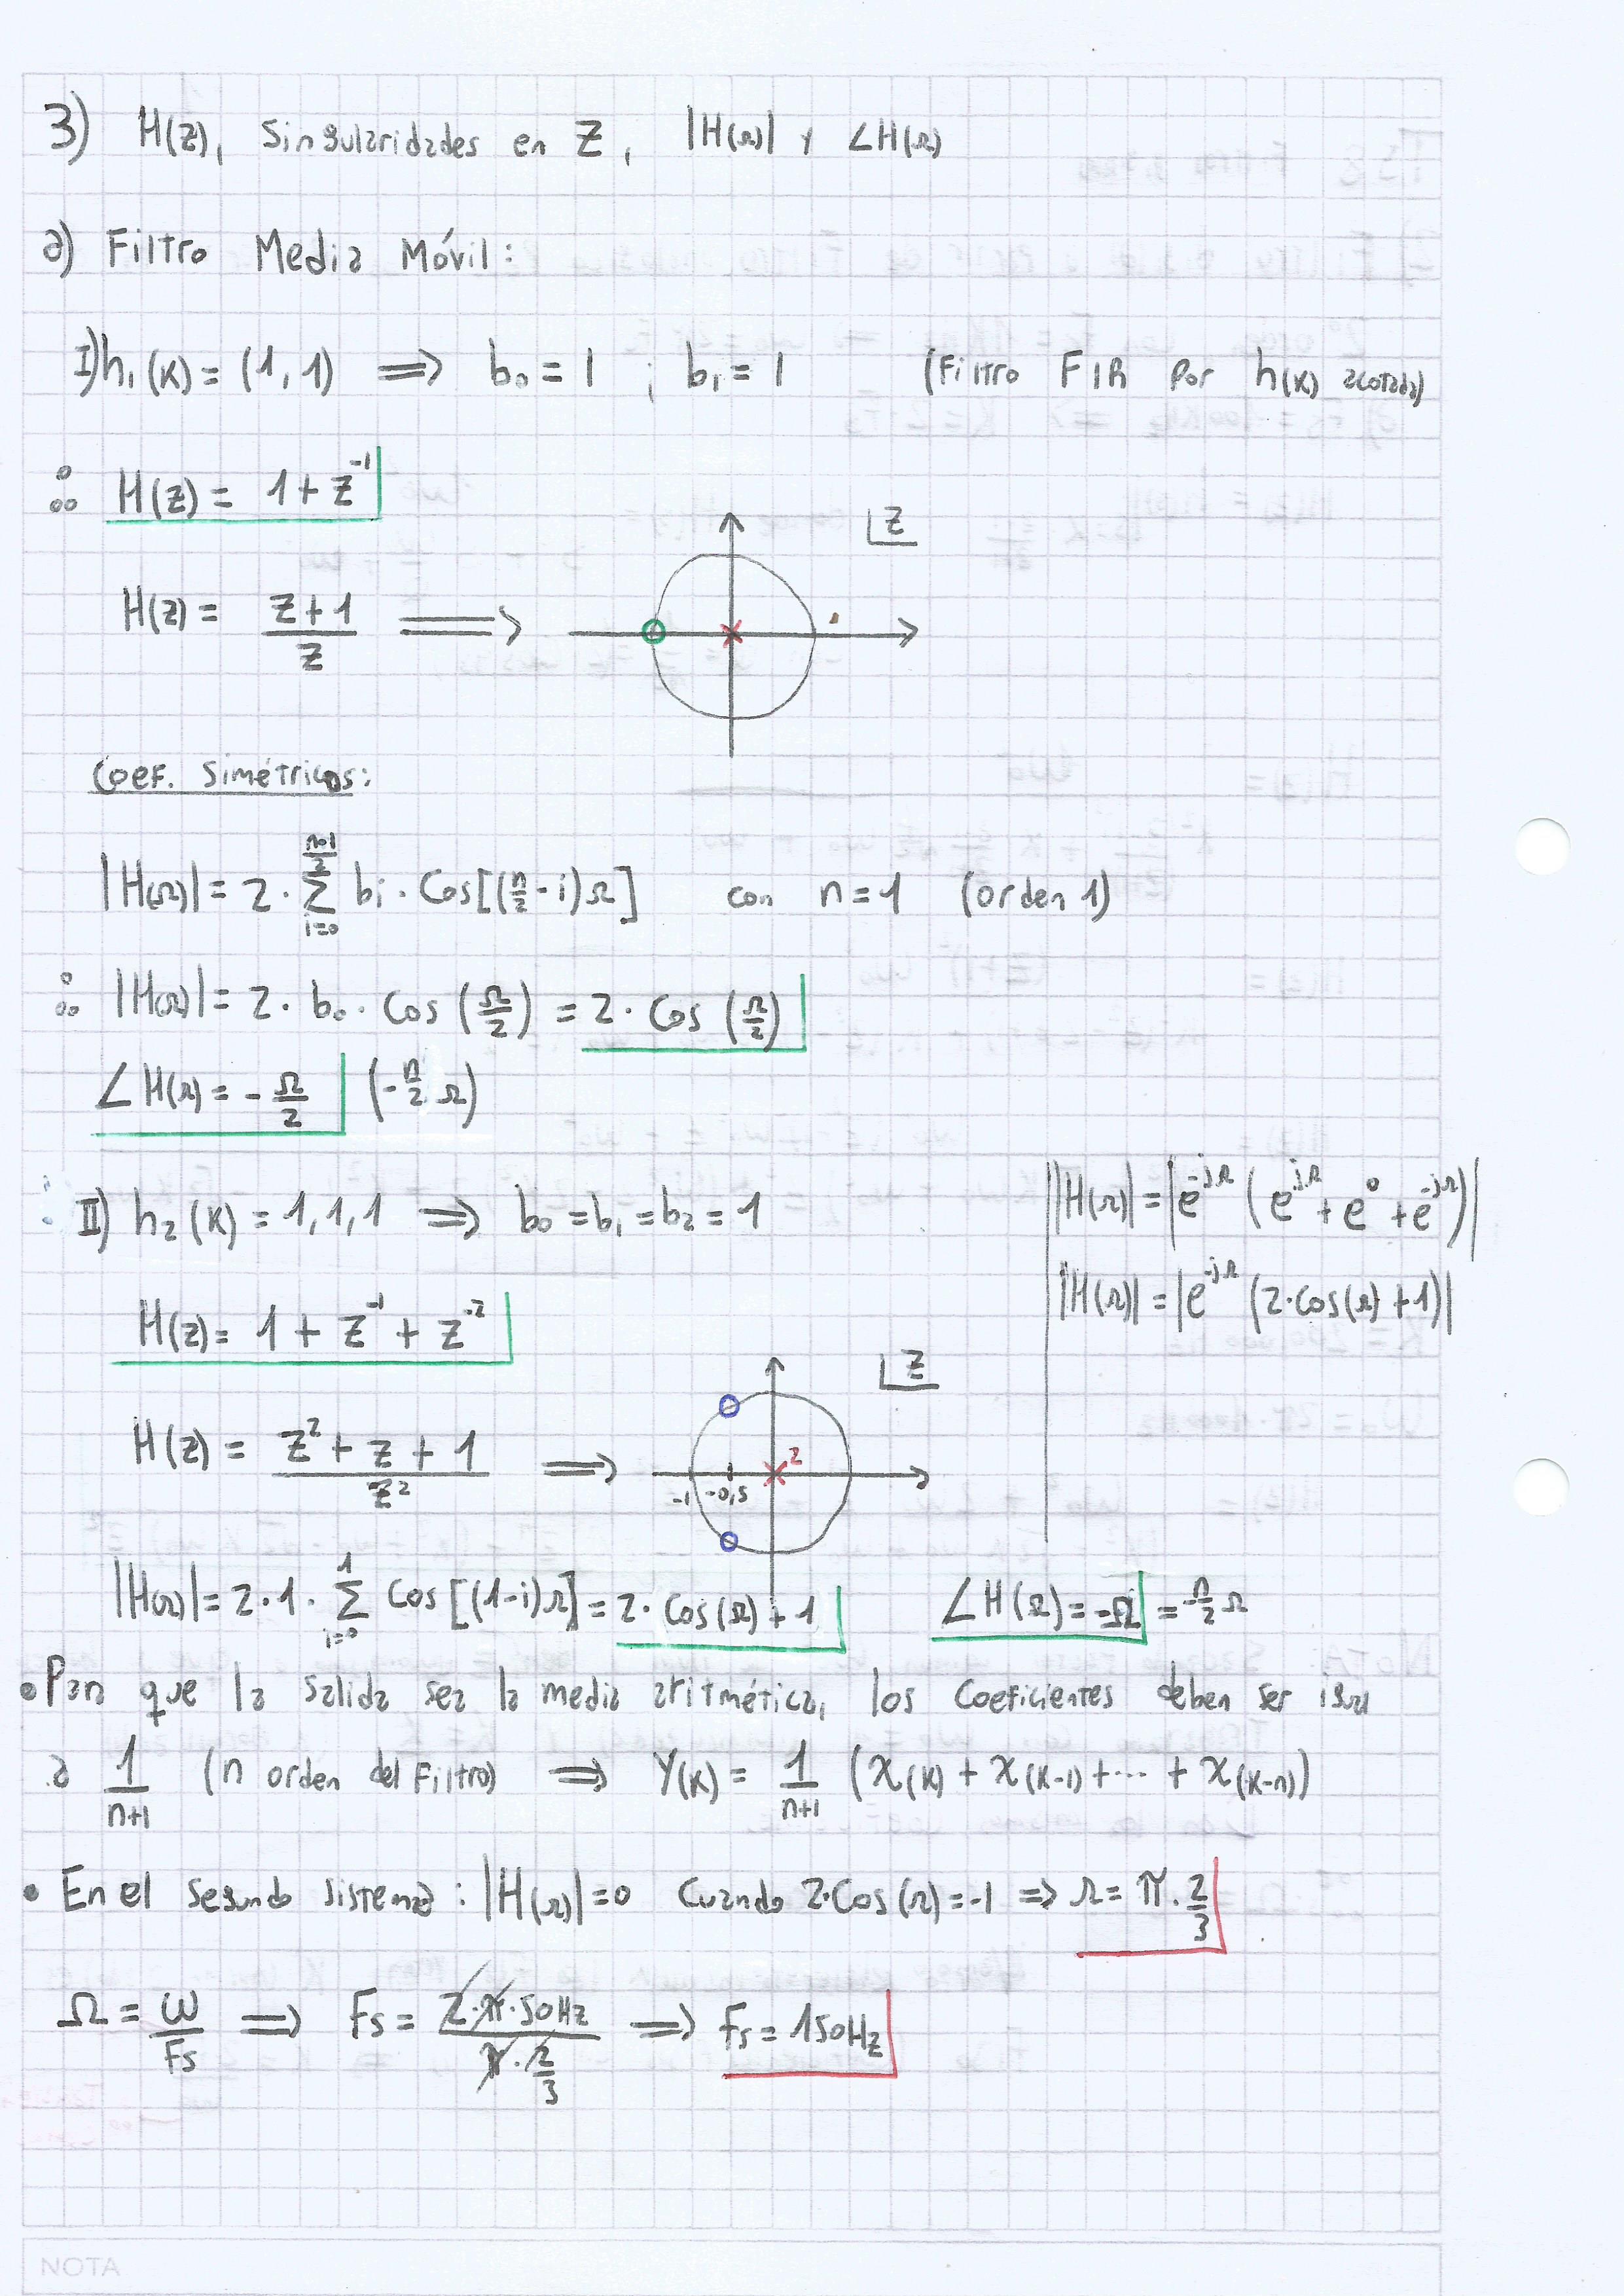 3) H(z), Singularidades en Z, |H(Ω)| y ∠H(Ω)
a) Filtro Media Móvil:
I) h₁(k) = (1, 1) ⟹ b₀ = 1 ; b₁ = 1 (Filtro FIR por h(k) acotada)
∴ H(z) = 1 + z⁻¹
Z
H(z) = (z + 1)/z ⟹
Coef. Simétricos:
|H(Ω)| = 2 · Σ_{i=0}^{(n-1)/2} bi · Cos[(n/2 - i)Ω] con n = 1 (orden 1)
∴ |H(Ω)| = 2 · b₀ · Cos (Ω/2) = 2 · Cos (Ω/2)
∠H(Ω) = -Ω/2 (-n/2 Ω)
II) h₂(k) = 1, 1, 1 ⟹ b₀ = b₁ = b₂ = 1
|H(Ω)| = |e^{-jΩ} (e^{jΩ} + e⁰ + e^{-jΩ})|
|H(Ω)| = |e^{-jΩ} (2·Cos(Ω) + 1)|
H(z) = 1 + z⁻¹ + z⁻²
Z
H(z) = (z² + z + 1)/z² ⟹
2
-1 -0,5
|H(Ω)| = 2 · 1 · Σ_{i=0}^{1} Cos [(1-i)Ω] = 2 · Cos(Ω) + 1 ∠H(Ω) = -Ω = -n/2 Ω
• Para que la salida sea la media aritmética, los coeficientes deben ser igual
a 1/(n+1) (n orden del Filtro) ⟹ Y(k) = 1/(n+1) (x(k) + x(k-1) + ··· + x(k-n))
• En el segundo sistema: |H(Ω)| = 0 Cuando 2·Cos(Ω) = -1 ⟹ Ω = π · 2/3
Ω = ω/Fs ⟹ Fs = (2·π·50Hz)/(π · 2/3) ⟹ fs = 150Hz
NOTA